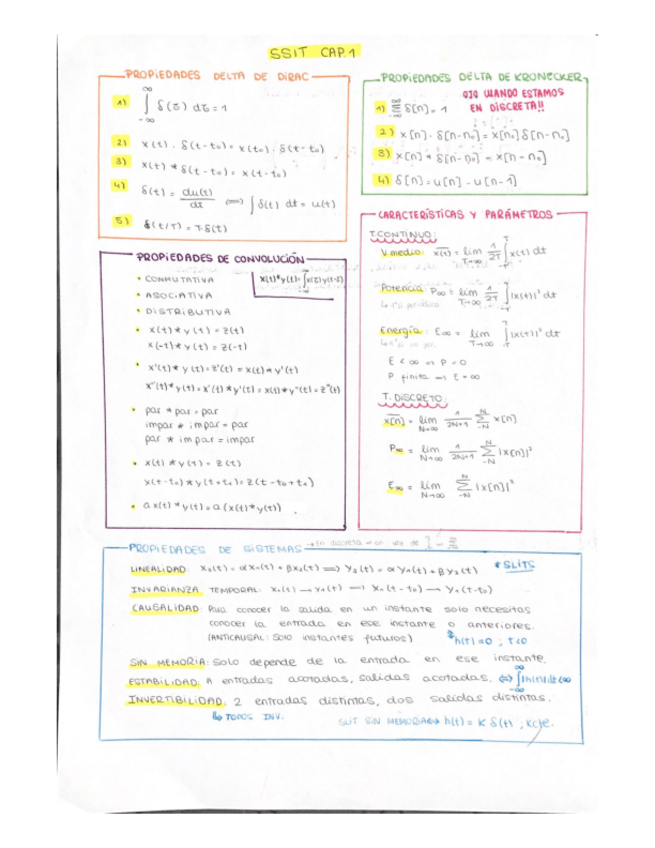 SSIT CAP.1
PROPIEDADES DELTA DE DIRAC
1) ∫_{-∞}^{∞} δ(τ) dτ = 1
2) x(t) · δ(t-t₀) = x(t₀) · δ(t-t₀)
3) x(t) * δ(t-t₀) = x(t-t₀)
4) δ(t) = du(t)/dt ⟺ ∫δ(t) dt = u(t)
5) δ(t/T) = T·δ(t)
PROPIEDADES DELTA DE KRONECKER
OJO CUANDO ESTAMOS
EN DISCRETA!!
1) Σ_{-∞}^{∞} δ[n] = 1
2) x[n] · δ[n-n₀] = x[n₀] δ[n-n₀]
3) x[n] * δ[n-n₀] = x[n-n₀]
4) δ[n] = u[n] - u[n-1]
PROPIEDADES DE CONVOLUCIÓN
x(t)*y(t) = ∫x(τ)y(t-τ)
• CONMUTATIVA
• ASOCIATIVA
• DISTRIBUTIVA
• x(t) * y(t) = z(t)
x(-t) * y(t) = z(-t)
• x'(t) * y(t) = z'(t) = x(t) * y'(t)
x''(t) * y(t) = x'(t) * y'(t) = x(t) * y''(t) = z''(t)
• par * par = par
impar * impar = par
par * impar = impar
• x(t) * y(t) = z(t)
x(t-t₀) * y(t+t₁) = z(t-t₀+t₁)
• ax(t) * y(t) = a(x(t) * y(t))
CARACTERÍSTICAS Y PARÁMETROS
T.CONTINUO:
V.medio: x(t) = lim_{T→∞} 1/2T ∫_{-T}^{T} x(t) dt
Potencia: P∞ = lim_{T→∞} 1/2T ∫_{-T}^{T} |x(t)|² dt
Energía: E∞ = lim_{T→∞} ∫_{-T}^{T} |x(t)|² dt
E < ∞ ⇒ P = 0
P finita ⇒ E = ∞
T. DISCRETO:
x[n] = lim_{N→∞} 1/2N+1 Σ_{-N}^{N} x[n]
P∞ = lim_{N→∞} 1/2N+1 Σ_{-N}^{N} |x[n]|²
E∞ = lim_{N→∞} Σ_{-N}^{N} |x[n]|²
→ En discreta
PROPIEDADES DE SISTEMAS
LINEALIDAD: X₃(t) = αX₁(t) + βX₂(t) ⟹ Y₃(t) = αY₁(t) + βY₂(t) * SLITS
INVARIANZA TEMPORAL: X₁(t) → Y₁(t) ⟹ X₁(t-t₀) → Y₁(t-t₀)
CAUSALIDAD: Para conocer la salida en un instante solo necesitas
conocer la entrada en ese instante o anteriores.
(ANTICAUSAL: SOLO instantes futuros) h(t)=0 ; t<0
SIN MEMORIA: Solo depende de la entrada en ese instante.
ESTABILIDAD: A entradas acotadas, salidas acotadas. ⟺ ∫_{-∞}^{∞}|h(t)|dt<∞
INVERTIBILIDAD: 2 entradas distintas, dos salidas distintas.
↳ TODOS INV. SLIT SIN MEMORIA → h(t) = K δ(t) ; Kcte.